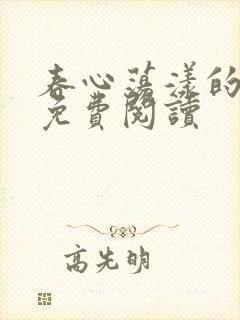 春心蕩漾的
免費閱讀
高先明